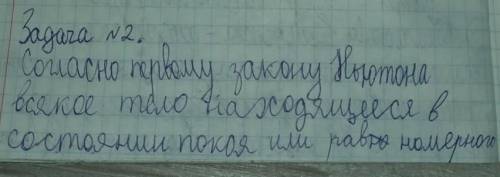 Задача №2.
Согласно первому закону Ньютона
всякое тело находящееся в
состоянии покоя или равно номерного